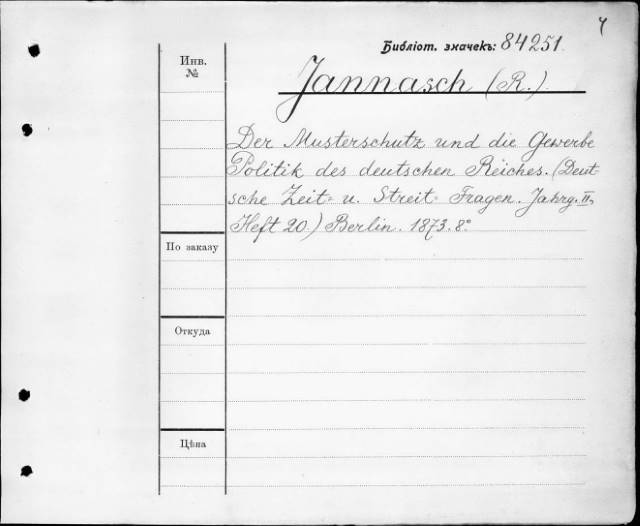 7
Библіот. значекъ: 84251.
Инв.
№
Jannasch (R.).
Der Musterschutz und die Gewerbe
Politik des deutschen Reiches. (Deut-
sche Zeit- u. Streit- Fragen. Jahrg. II,
Heft 20.) Berlin. 1873. 8°.
По заказу
Откуда
Цѣна